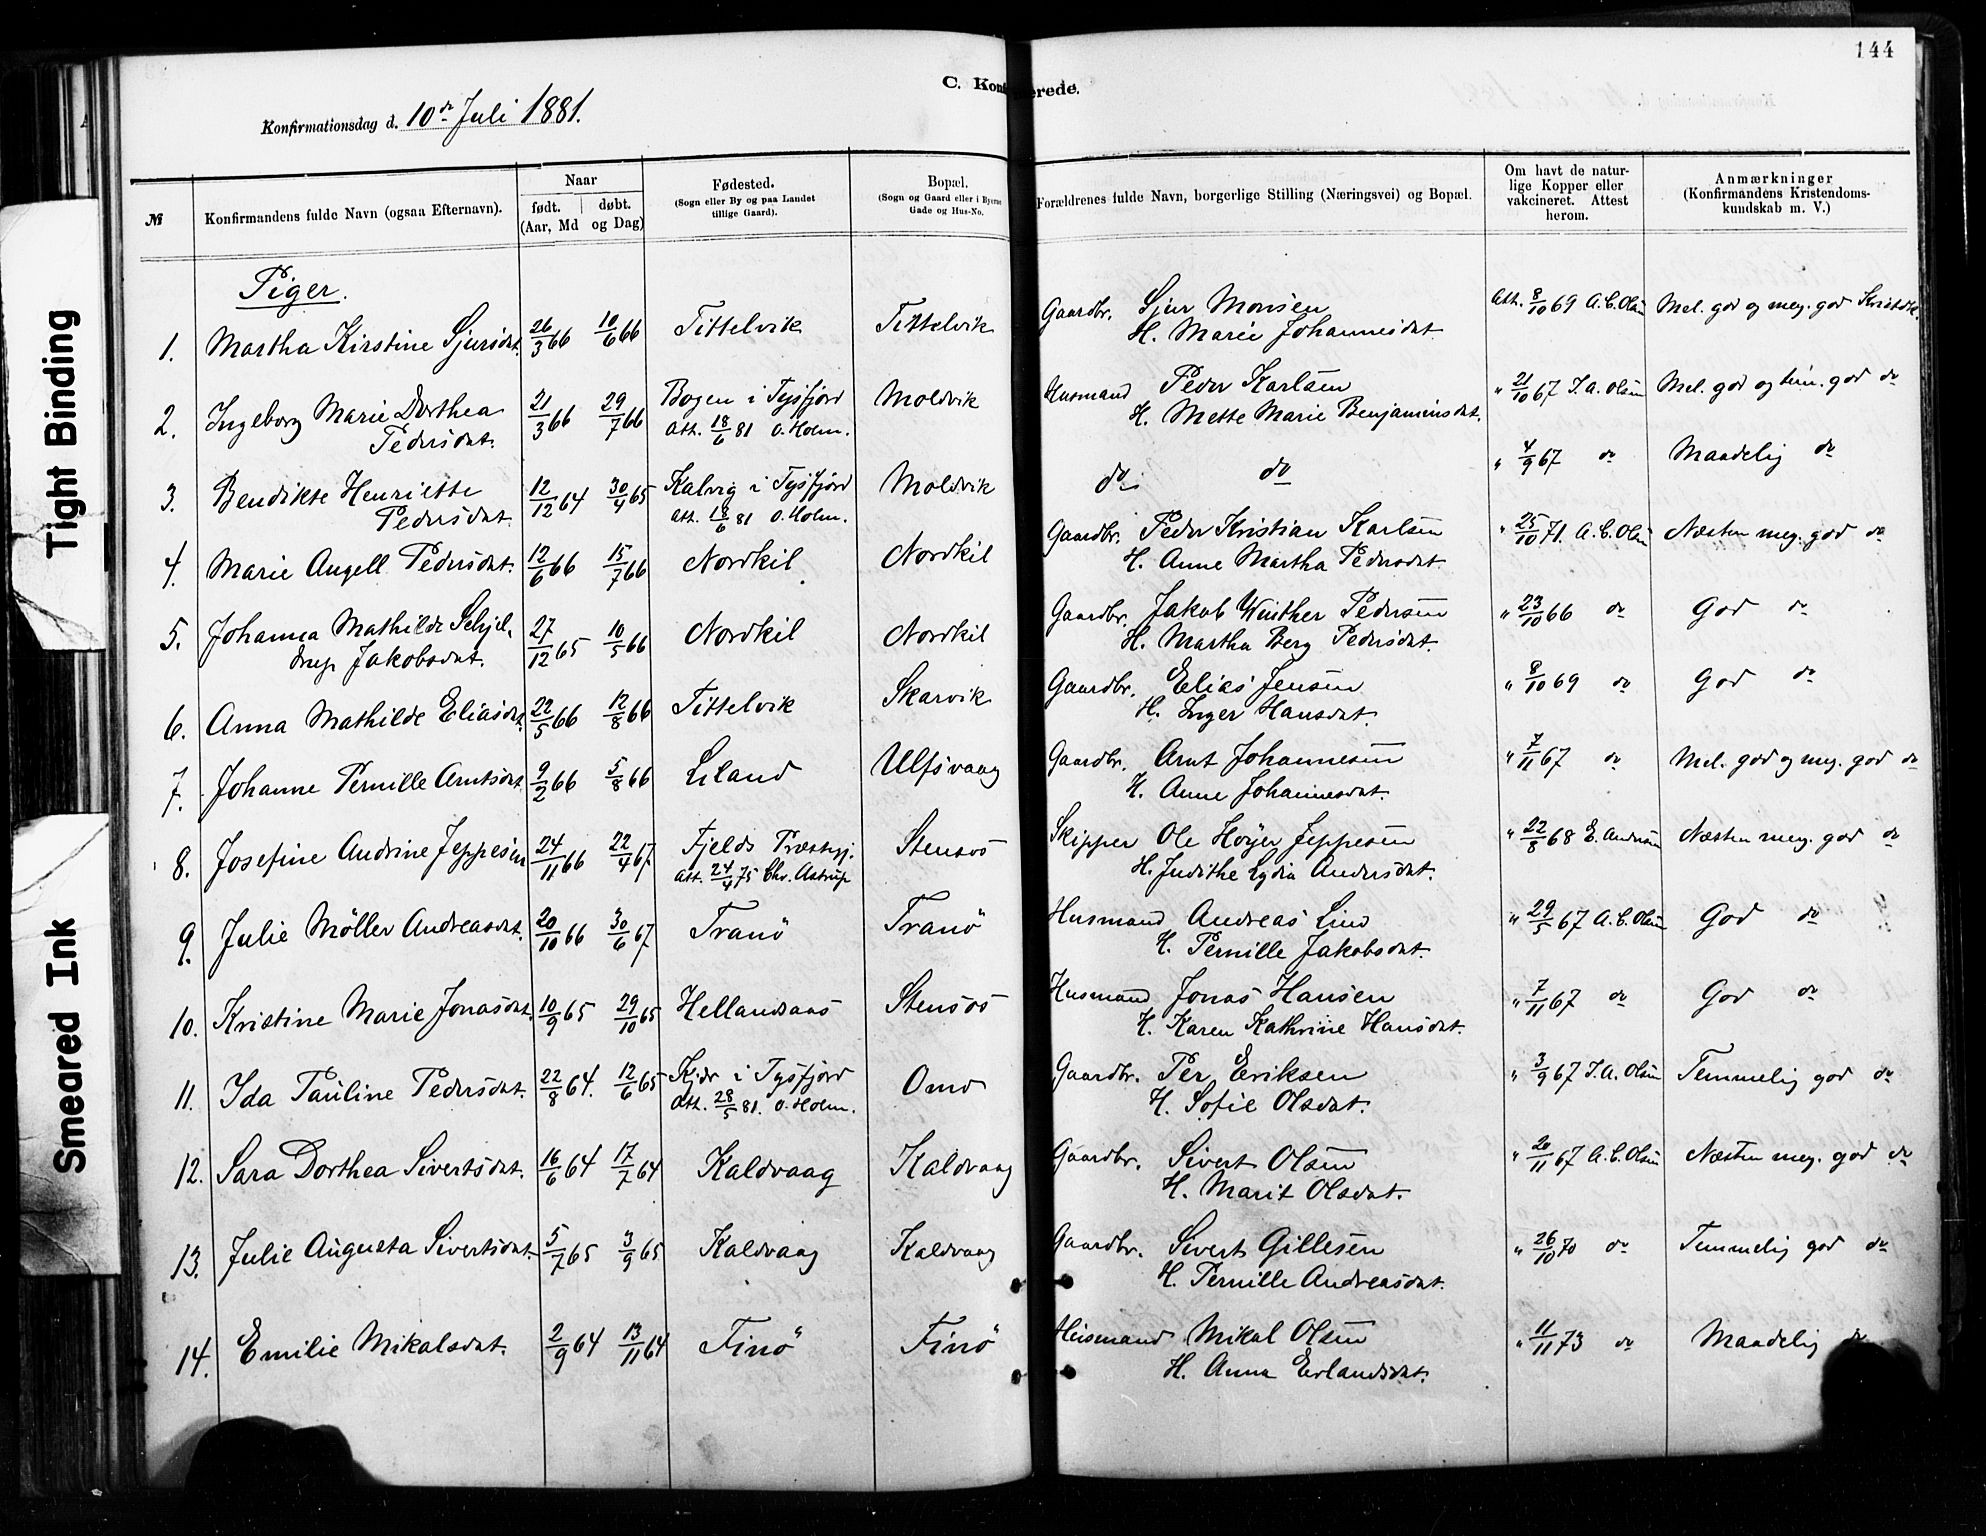 144
C. Konf
erede.
Konfirmationsdag d. 10de Juli 1881.
№
Konfirmandens fulde Navn (ogsaa Efternavn).
Naar
født. døbt.
(Aar, Md og Dag)
Fødested.
(Sogn eller By og paa Landet
tillige Gaard).
Bopæl.
(Sogn og Gaard eller i Byerne
Gade og Hus-No.
Forældrenes fulde Navn, borgerlige Stilling (Næringsvei) og Bopæl.
Om havt de natur-
lige Kopper eller
vakcineret. Attest
herom.
Anmærkninger
(Konfirmandens Kristendoms-
kundskab m. V.)
Piger.
1. Martha Kirstine Sjursdat. 26/3 66 10/6 66 Tittelvik Tittelvik Gaardbr. Sjur Monsen Att. 8/10 69 A. C. Olsen Mel. god og meg. god Kristdk.
H. Marie Johannesdat.
2. Ingeborg Marie Dorthea 21/3 66 29/7 66 Bogen i Tysfjord Moldvik Husmand Peder Karlsen " 21/10 67 J. A. Olsen Mel. god og tem. god do
Pedersdat. Att. 18/6 81 O. Holm. H. Mette Marie Benjaminsdat.
3. Bendikte Henriette 12/12 64 30/4 65 Kalvig i Tysfjord Moldvik do do " 4/9 67 do Maadelig do
Pedersdat. Att. 18/6 81 O. Holm.
4. Marie Angell Pedersdat. 12/6 66 15/7 66 Nordkil Nordkil Gaardbr. Peder Kristian Karlsen " 25/10 71. A. C. Olsen Næsten meg. god do
H. Anne Martha Pedersdat.
5. Johanna Mathilde Schjel- 27/12 65 10/5 66 Nordkil Nordkil Gaardbr. Jakob Winther Pedersen " 23/10 66 do God do
drup Jakobsdat. H. Martha Berg Pedersdat.
6. Anna Mathilde Eliasdat. 22/5 66 12/8 66 Tittelvik Skarvik Gaardbr. Elias Jensen " 8/10 69 do God do
H. Inger Hansdat.
7. Johanne Pernille Arntsdat. 9/2 66 5/8 66 Liland Ulfsvaag Gaardbr. Arnt Johannesen " 7/11 67 do Mel. god og meg. god do
H. Anne Johannesdat.
8. Josefine Andrine Jeppesen 24/11 66 22/4 67. Fjelds Præstegj. Stensøs Skipper Ole Høyer Jeppesen " 22/8 68 E. Andersen Næsten meg. god do
Att. 24/4 75 Chr. Astrup H. Judithe Lydia Andersdat.
9. Julie Møller Andreasdat. 20/10 66 30/6 67 Tranö Tranö Husmand Andreas Lind " 29/5 67 A. C. Olsen God do
H. Pernille Jakobsdat.
10. Kristine Marie Jonasdat. 10/9 65 29/10 65 Hellandsaas Stensøs Husmand Jonas Hansen " 7/11 67 do God do
H. Karen Kathrine Hansdat.
11. Ida Pauline Pedersdat. 22/8 64. 12/6 65 Kjær i Tysfjord Omd Gaardbr. Per Eriksen " 3/9 67 J. A. Olsen Temmelig god do
Att. 28/5 81. O. Holm. H. Sofie Olsdat.
12. Sara Dorthea Sivertsdat. 16/6 64 17/7 64 Kaldvaag Kaldvaag Gaardbr. Sivert Olsen " 20/11 67 A. C. Olsen Næsten meg. god do
H. Marit Olsdat.
13. Julie Augusta Sivertsdat. 5/7 65 3/9 65 Kaldvaag Kaldvaag Gaardbr. Sivert Gillesen " 26/10 70 do Temmelig god do
H. Pernille Andreasdat.
14. Emilie Mikalsdat. 2/9 64 13/11 64 Finö Finö Husmand Mikal Olsen " 11/11 73 do Maadelig do
H. Anna Erlandsdat.
Tight Binding
Smeared Ink